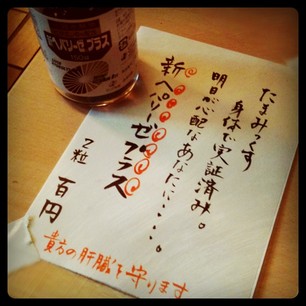 たまみっくす
身体で実証済み。
明日が心配なあなたに・・・・。
新ヘパリーゼプラス
2粒 百円
貴方の肝臓を守ります
ヘパリーゼプラス